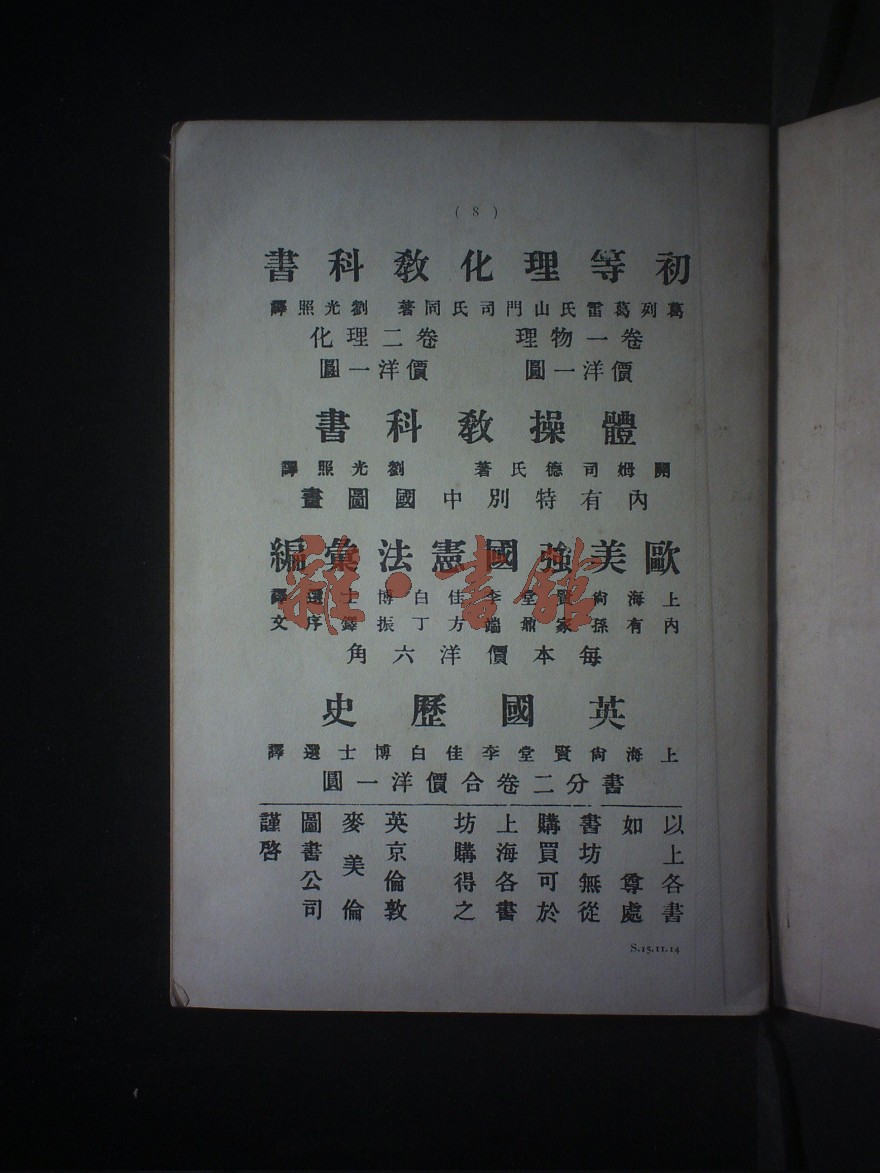 ( 8 )
初等理化教科書
葛列葛雷氏山門司氏同著 劉光照譯
卷一物理 卷二理化
價洋一圓 價洋一圓
體操教科書
開姆司德氏著 劉光照譯
內有特別中國圖畫
歐美強國憲法彙編
上海尙賢堂李佳白博士選譯
內有孫家鼐端方丁振鐸序文
每本價洋六角
英國歷史
上海尙賢堂李佳白博士選譯
書分二卷合價洋一圓
以上各書
如 尊處
書坊無從
購買可於
上海各書
坊購得之
英京倫敦
麥美倫
圖書公司
謹啓
S.15.11.14
雜·書館